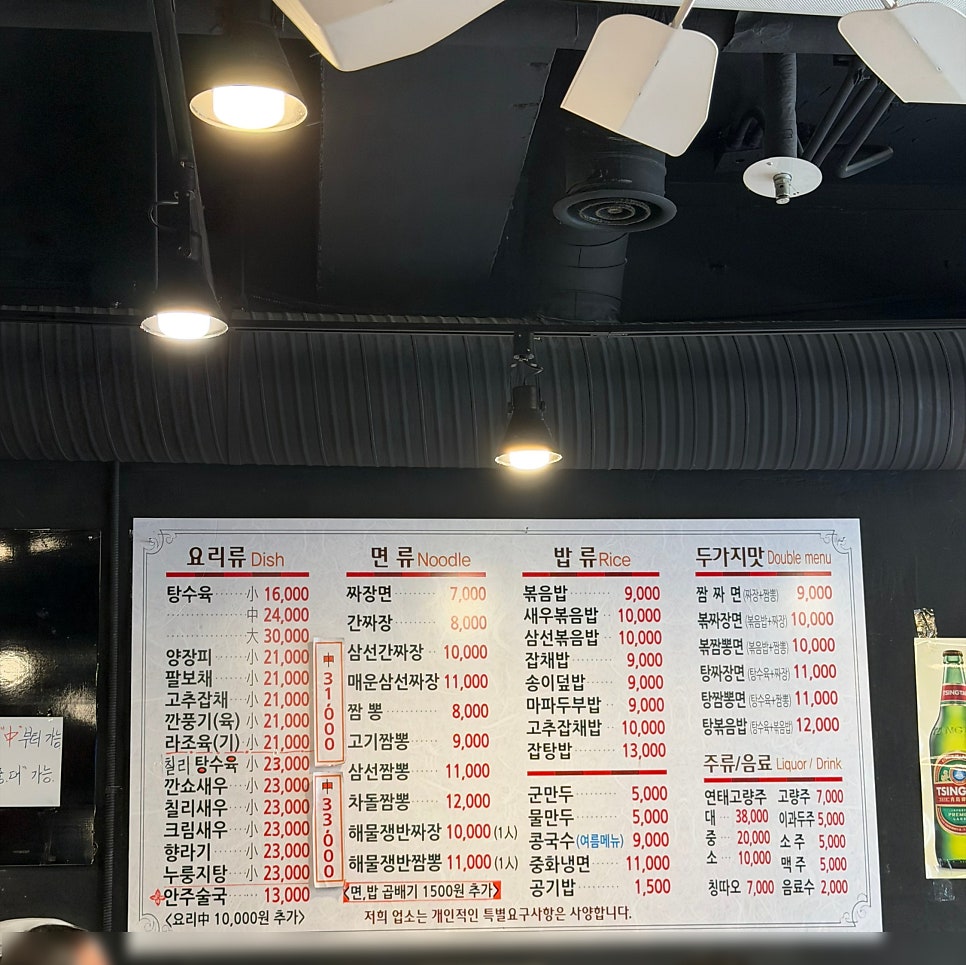 요리류 Dish
탕수육 小 16,000
中 24,000
大 30,000
양장피 小 21,000
팔보채 小 21,000
고추잡채 小 21,000
깐풍기(육) 小 21,000
라조육(기) 小 21,000
칠리 탕수육 小 23,000
깐쇼새우 小 23,000
칠리새우 小 23,000
크림새우 小 23,000
향라기 小 23,000
누룽지탕 小 23,000
안주술국 13,000
<요리中 10,000원 추가>
中 31,000
中 33,000
면 류 Noodle
짜장면 7,000
간짜장 8,000
삼선간짜장 10,000
매운삼선짜장 11,000
짬 뽕 8,000
고기짬뽕 9,000
삼선짬뽕 11,000
차돌짬뽕 12,000
해물쟁반짜장 10,000 (1人)
해물쟁반짬뽕 11,000 (1人)
<면,밥 곱배기 1500원 추가>
밥 류 Rice
볶음밥 9,000
새우볶음밥 10,000
삼선볶음밥 10,000
잡채밥 9,000
송이덮밥 9,000
마파두부밥 9,000
고추잡채밥 10,000
잡탕밥 13,000
군만두 5,000
물만두 5,000
콩국수 (여름메뉴) 9,000
중화냉면 11,000
공기밥 1,500
두가지맛 Double menu
짬 짜 면 (짜장+짬뽕) 9,000
볶짜장면 (볶음밥+짜장) 10,000
볶짬뽕면 (볶음밥+짬뽕) 10,000
탕짜장면 (탕수육+짜장) 11,000
탕짬뽕면 (탕수육+짬뽕) 11,000
탕볶음밥 (탕수육+볶음밥) 12,000
주류/음료 Liquor / Drink
연태고량주 고량주 7,000
대 38,000 이과두주 5,000
중 20,000 소 주 5,000
소 10,000 맥 주 5,000
칭따오 7,000 음료수 2,000
저희 업소는 개인적인 특별요구사항은 사양합니다.
"中"부터 가능
가능
TSINGTAO